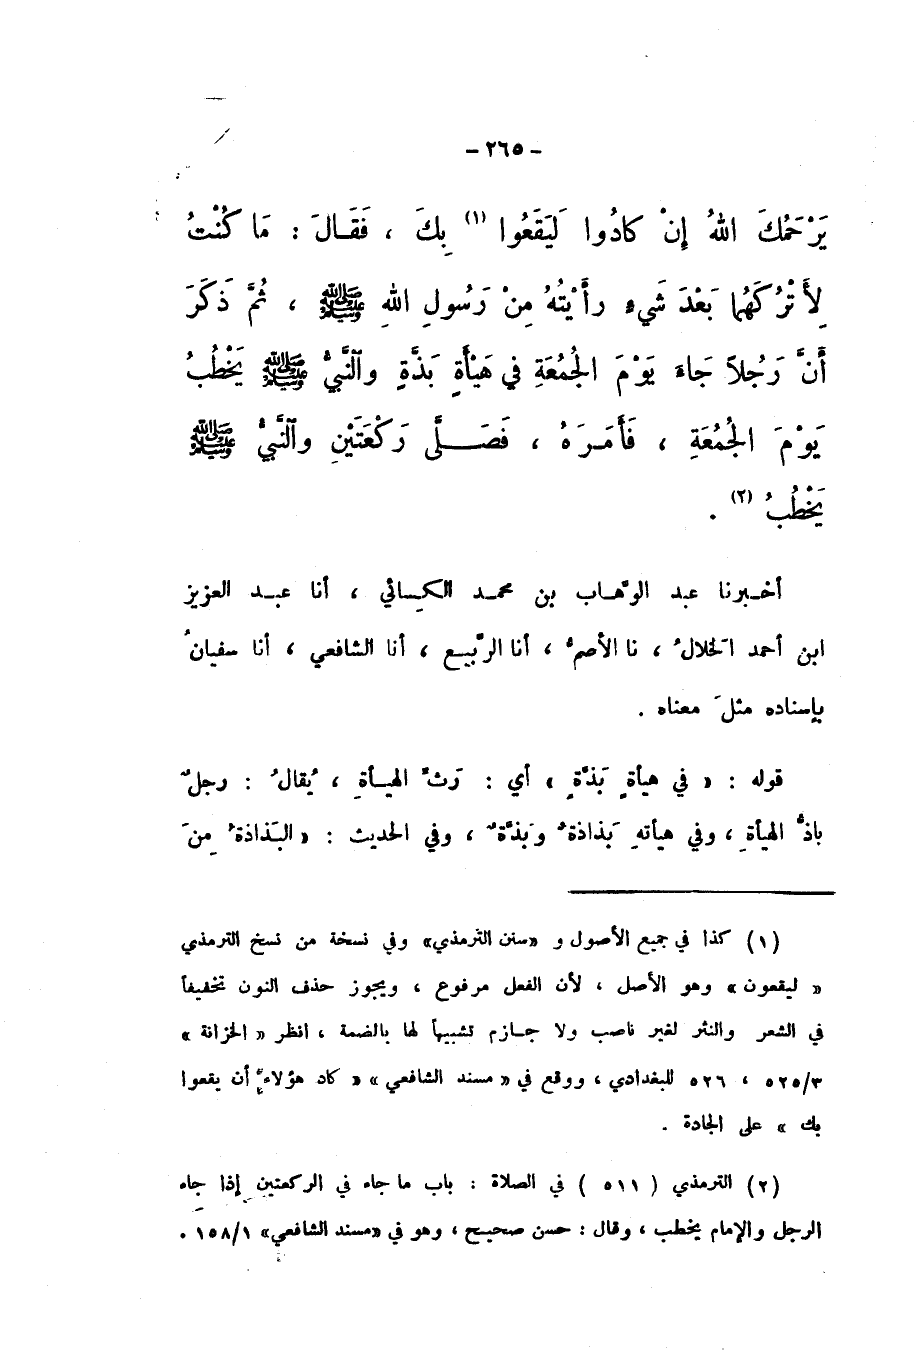 - ٢٦٥ -
يَرْحَمُكَ اللهُ إِنْ كادُوا لَيَقَعُوا (١) بِكَ ، فَقَـالَ : مَا كُنْتُ
لِأَتْرُكَهُما بَعْدَ شَيءٍ رأَيْتُهُ مِنْ رَسُولِ اللهِ ﷺ ، ثُمَّ ذَكَرَ
أَنَّ رَجُلاً جَاءَ يَوْمَ الجُمُعَةِ في هَيْأَةٍ بَذَّةٍ والنَّبيُّ ﷺ يَخْطُبُ
يَوْمَ الجُمُعَةِ ، فَأَمَـرَهُ ، فَصَـــلَّى رَكْعَتَيْنِ والنَّبيُّ ﷺ
يَخْطُبُ (٢) .
أخـبرنا عبد الوَّهـاب بن محمـد الكِـسائي ، أنا عبـد العزيز
ابن أحمد الخَلالُ ، نا الأصمُّ ، أنا الرَّبيـع ، أنا الشافعي ، أنا سفيانُ
بإسناده مثلَ معناه .
قوله : « في هيأةٍ بَذَّةٍ » أي : رَثَّ الهيـأةِ ، يُقالُ : رجلٌ
باذُّ الهيأةِ ، وفي هيأتهِ بَذاذةٌ وبَذَّةٌ ، وفي الحديث : « البَذاذةُ مِنَ
(١) كذا في جميع الأصول و «سنن الترمذي» وفي نسخة من نسخ الترمذي
« ليقعون » وهو الأصل ، لأن الفعل مرفوع ، ويجوز حذف النون تخفيفاً
في الشعر والنثر لغير ناصب ولا جـازم تشبيهاً لها بالضمة ، انظر « الخزانة »
٥٢٥/٣ ، ٥٢٦ للبغدادي ، ووقع في « مسند الشافعي » « كاد هؤلاءِ أن يقعوا
بك » على الجادة .
(٢) الترمذي ( ٥١١ ) في الصلاة : باب ما جاء في الركعتين إذا جاء
الرجل والإمام يخطب ، وقال : حسن صحيح ، وهو في «مسند الشافعي» ١٥٨/١ .